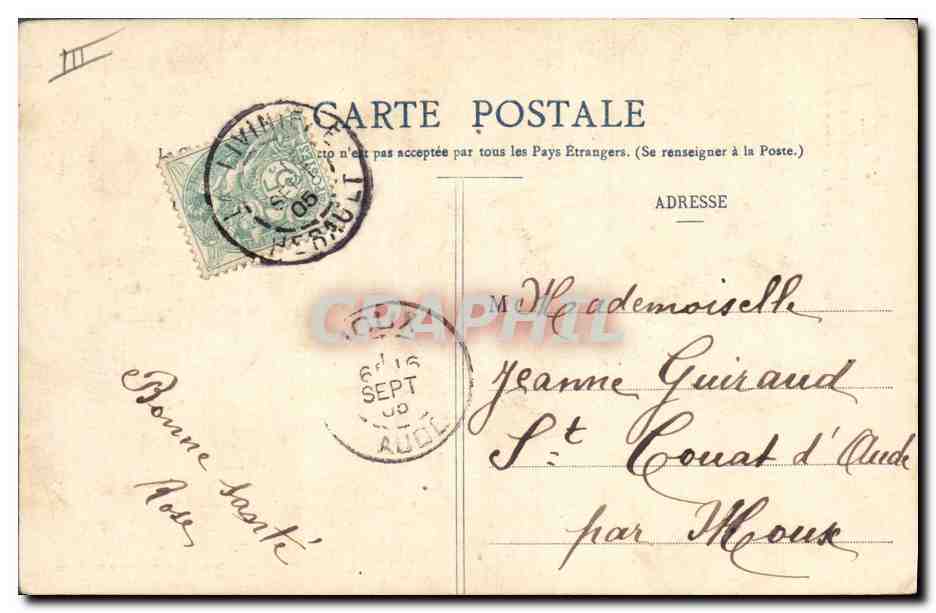 III
CARTE POSTALE
n'est pas acceptée par tous les Pays Étrangers. (Se renseigner à la Poste.)
LIVINI
HERAULT
05
ADRESSE
CPARAPHIL
OUX
SEPT
AUDE
M Mademoiselle
Jeanne Guiraud
St Couat d'Aude
par Moux
Bonne santé
Rose